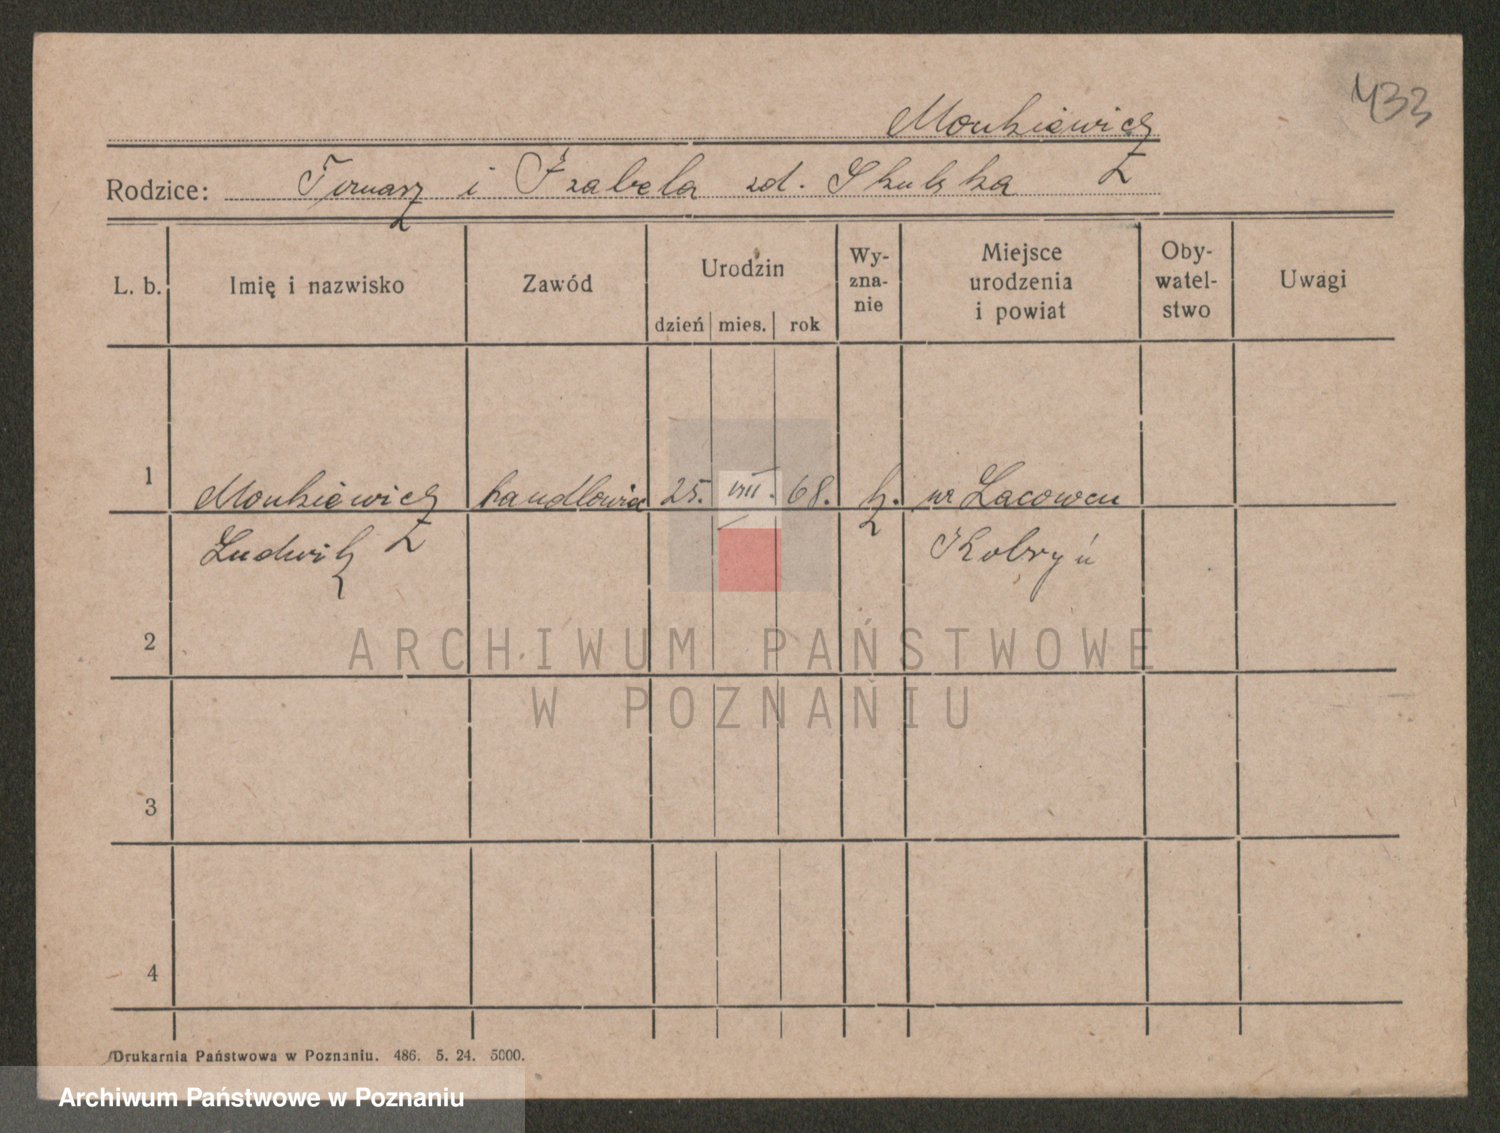 433
Monkiewicz
Rodzice: Tomasz i Izabela zd. Skulska
L. b. Imię i nazwisko Zawód Urodzin dzień mies. rok Wy-zna-nie Miejsce urodzenia i powiat Oby-watel-stwo Uwagi
1 Monkiewicz handlowiec 25. VIII. 68. k. ur
Ludwik Kobryń
2
ARCHIWUM PAŃSTWOWE
W POZNANIU
3
4
Drukarnia Państwowa w Poznaniu. 486. 5. 24. 5000.
Archiwum Państwowe w Poznaniu